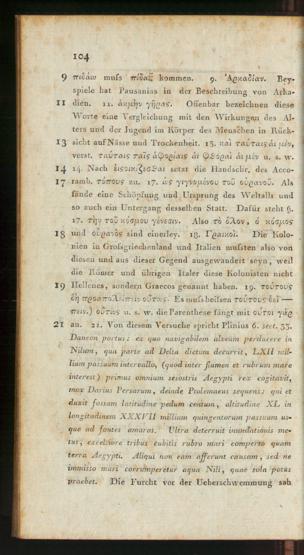 104
9 πιδάω muſs πίδαξ kommen. 9. Ἀρκαδίαν. Bey-
spiele hat Pausanias in der Beschreibung von Arka-
11 dien. 11. ἀκμὴν γῆρας. Offenbar bezeichnen diese
Worte eine Vergleichung mit den Wirkungen des Al-
ters und der Jugend im Körper des Menschen in Rück-
13 sicht auf Nässe und Trockenheit. 13. καὶ ταύταις αἱ μὲν,
verst. ταύταις ταῖς ἀφορίαις αἱ φθοραὶ αἱ μὲν u. s. w.
14 14. Nach εἰσοικίζεσθαι setzt die Handschr. des Acco-
17 ramb. τόπους zu. 17. ὡς γιγνομένου τοῦ οὐρανοῦ. Als
fände eine Schöpfung und Ursprung des Weltalls und
so auch ein Untergang desselben Statt. Dafür steht §.
17. τὴν τοῦ κόσμου γένεσιν. Also τὸ ὅλον, ὁ κόσμος
18 und οὐρανός sind einerley. 18. Γραικοί. Die Kolo-
nien in Grofsgriechenland und Italien muſsten also von
diesen und aus dieser Gegend ausgewandert seyn, weil
die Römer und übrigen Italer diese Kolonisten nicht
19 Hellenes, sondern Graecos genannt haben. 19. τούτους
δὴ προαπολείπειν οὕτως. Es muſs heiſsen τούτους δεῖ —
πειν.) οὕτως u. s. w. die Parenthese fängt mit οὗτοι γὰρ
21 an. 21. Von diesem Versuche spricht Plinius 6. sect. 33.
Daneon portus: ex quo navigabilem alveum perducere in
Nilum, qua parte ad Delta dictum decurrit, LXII mil-
lium passuum intervallo, (quod inter flumen et rubrum mare
interest) primus omnium sesostris Aegypti rex cogitavit,
mox Darius Persarum, deinde Ptolemaeus sequens: qui et
duxit fossam latitudine pedum centum, altitudine XL in
longitudinem XXXVII millium quingentorum passuum us-
que ad fontes amaros. Ultra deterruit inundationis me-
tus, excelsiore tribus cubitis rubro mari comperto quam
terra Aegypti. Aliqui non eam afferunt causam, sed ne
immisso mari corrumperetur aqua Nili, quae sola potus
praebet. Die Furcht vor der Ueberschwemmung sah